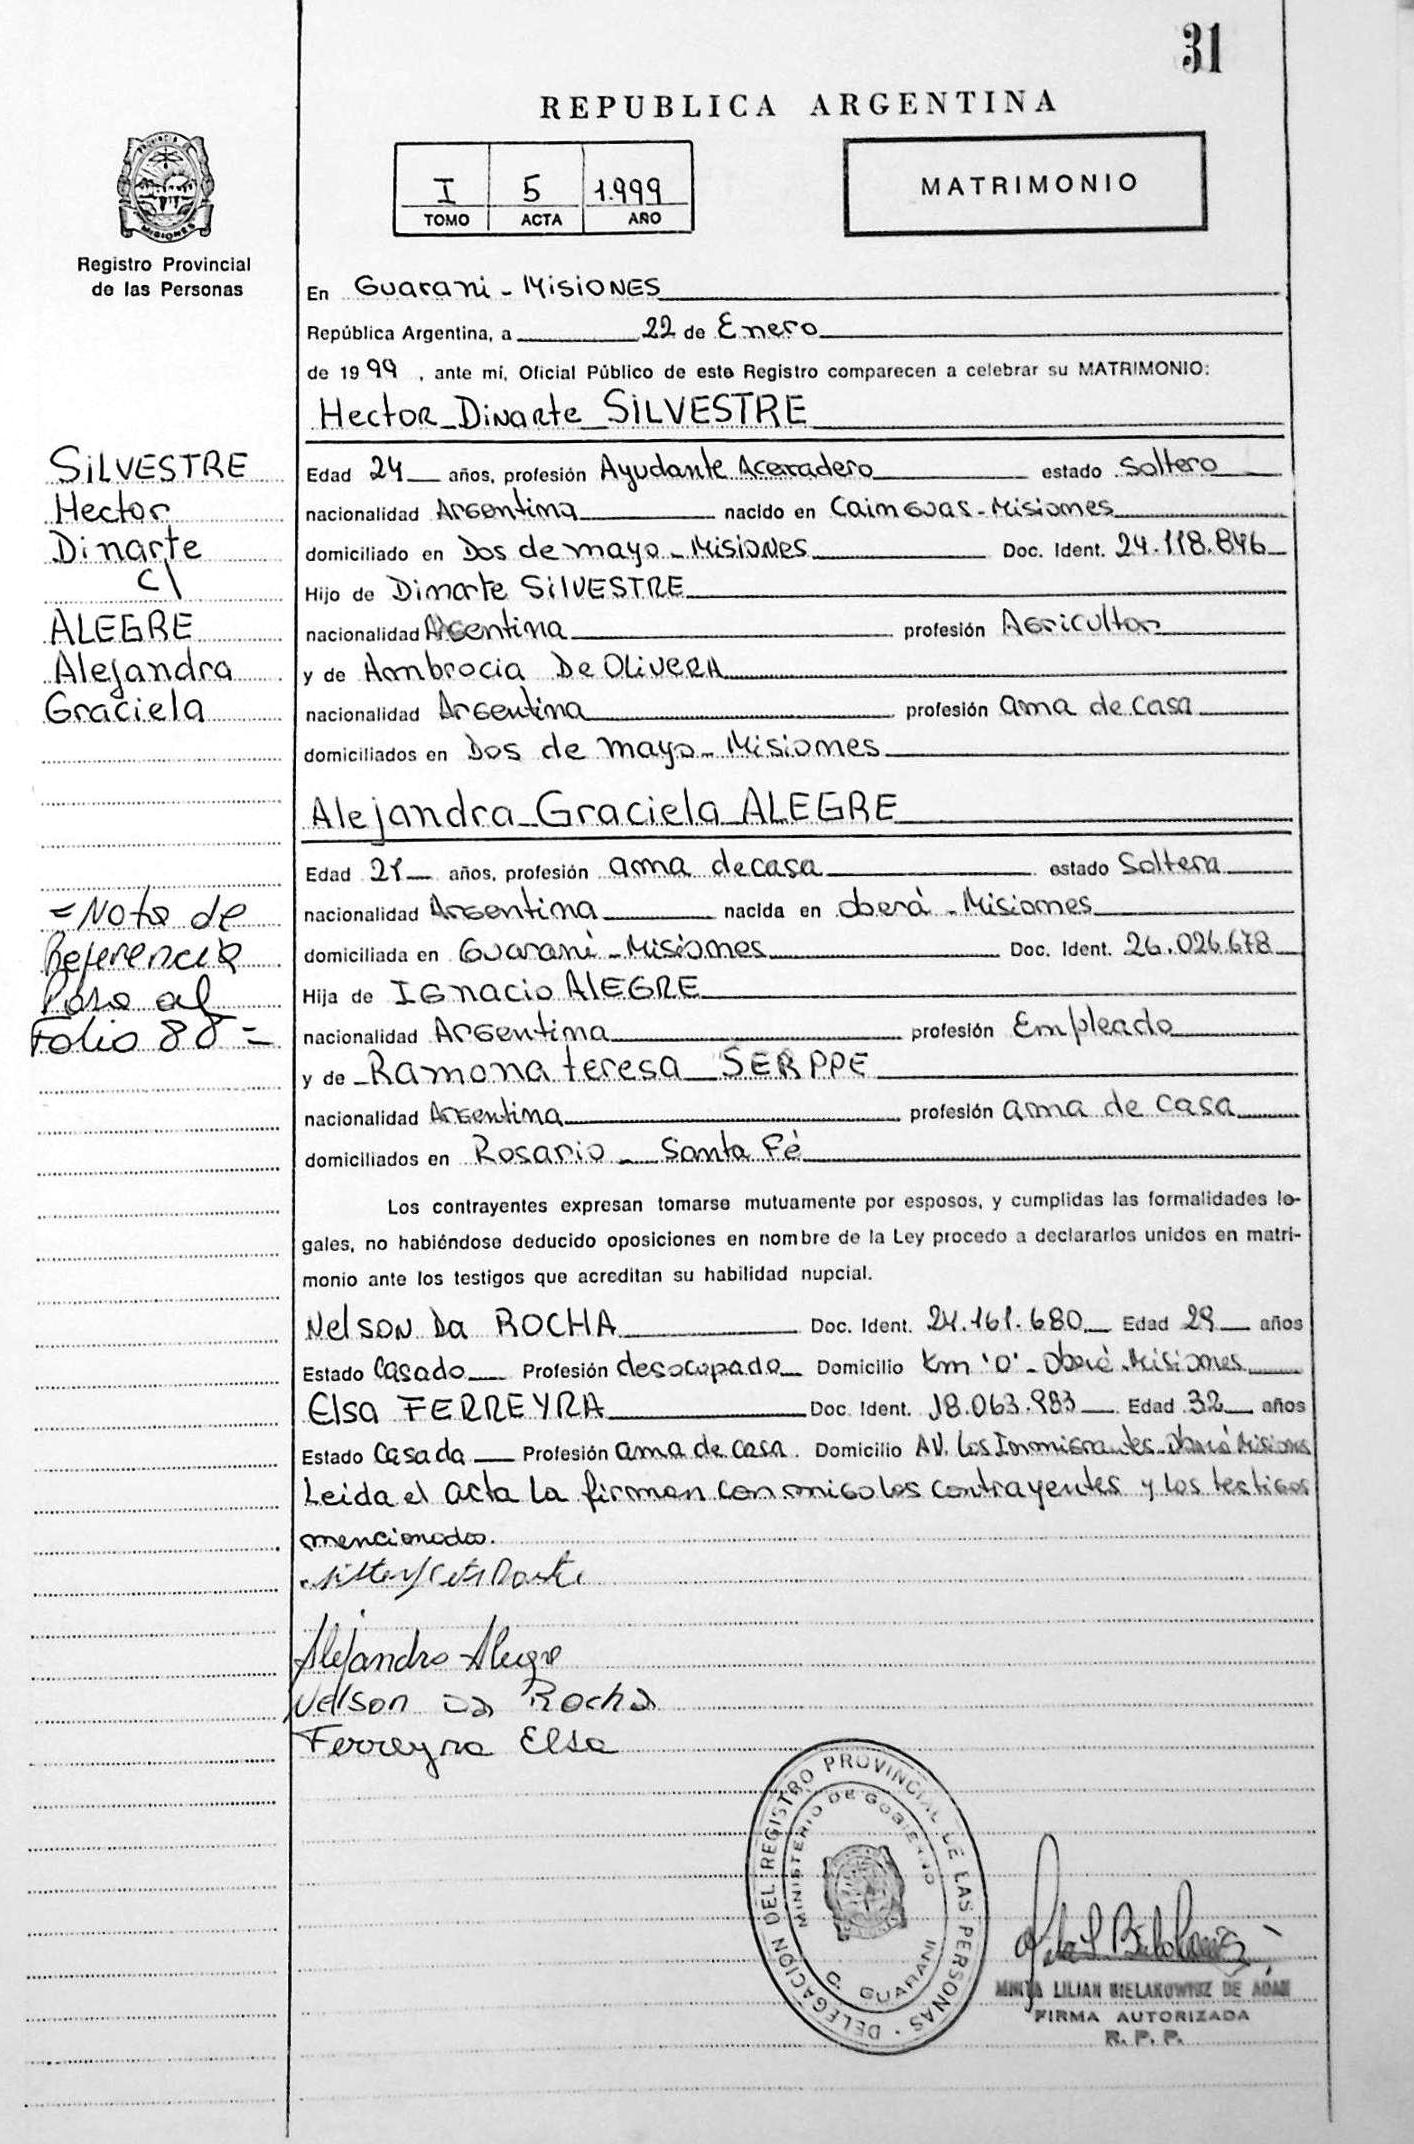 31
REPUBLICA ARGENTINA
I 5 1.999
TOMO ACTA AÑO
MATRIMONIO
PROVINCIA DE
MISIONES
Registro Provincial
de las Personas
En Guarani - Misiones
República Argentina, a 22 de Enero
de 1999, ante mí, Oficial Público de este Registro comparecen a celebrar su MATRIMONIO:
Hector Dinarte SILVESTRE
SILVESTRE
Hector
Dinarte
c/
ALEGRE
Alejandra
Graciela
Edad 24 años, profesión Ayudante Acerradero estado Soltero
nacionalidad Argentina nacido en Cainguas - Misiones
domiciliado en Dos de mayo - Misiones Doc. Ident. 24.118.846
Hijo de Dinarte SILVESTRE
nacionalidad Argentina profesión Agricultor
y de Ambrocia De OLIVERA
nacionalidad Argentina profesión ama de casa
domiciliados en Dos de mayo - Misiones
Alejandra Graciela ALEGRE
Edad 21 años, profesión ama de casa estado Soltera
nacionalidad Argentina nacida en oberá - Misiones
domiciliada en Guaraní - Misiones Doc. Ident. 26.026.678
Hija de Ignacio ALEGRE
nacionalidad Argentina profesión Empleado
y de Ramona teresa SERPPE
nacionalidad Argentina profesión ama de casa
domiciliados en Rosario - Santa Fé
= Nota de
Referencia
Pasa al
Folio 88 =
Los contrayentes expresan tomarse mutuamente por esposos, y cumplidas las formalidades le-
gales, no habiéndose deducido oposiciones en nombre de la Ley procedo a declararlos unidos en matri-
monio ante los testigos que acreditan su habilidad nupcial.
Nelson Da ROCHA Doc. Ident. 24.161.680 Edad 29 años
Estado Casado Profesión desocupado Domicilio Km '0' - Oberá - Misiones
Elsa FERREYRA Doc. Ident. 18.063.983 Edad 32 años
Estado Casada Profesión ama de casa. Domicilio AV. Los Inmigrantes - Oberá Misiones
Leida el acta la firman conmigo los contrayentes y los testigos
mencionados.
Alejandra Alegre
Nelson Da Rocha
Ferreyra Elsa
DELEGACION DEL REGISTRO PROVINCIAL DE LAS PERSONAS
MINISTERIO DE GOBIERNO
G. GUARANI
LILIAN BIELAKOWICZ DE ADAM
FIRMA AUTORIZADA
R. P. P.